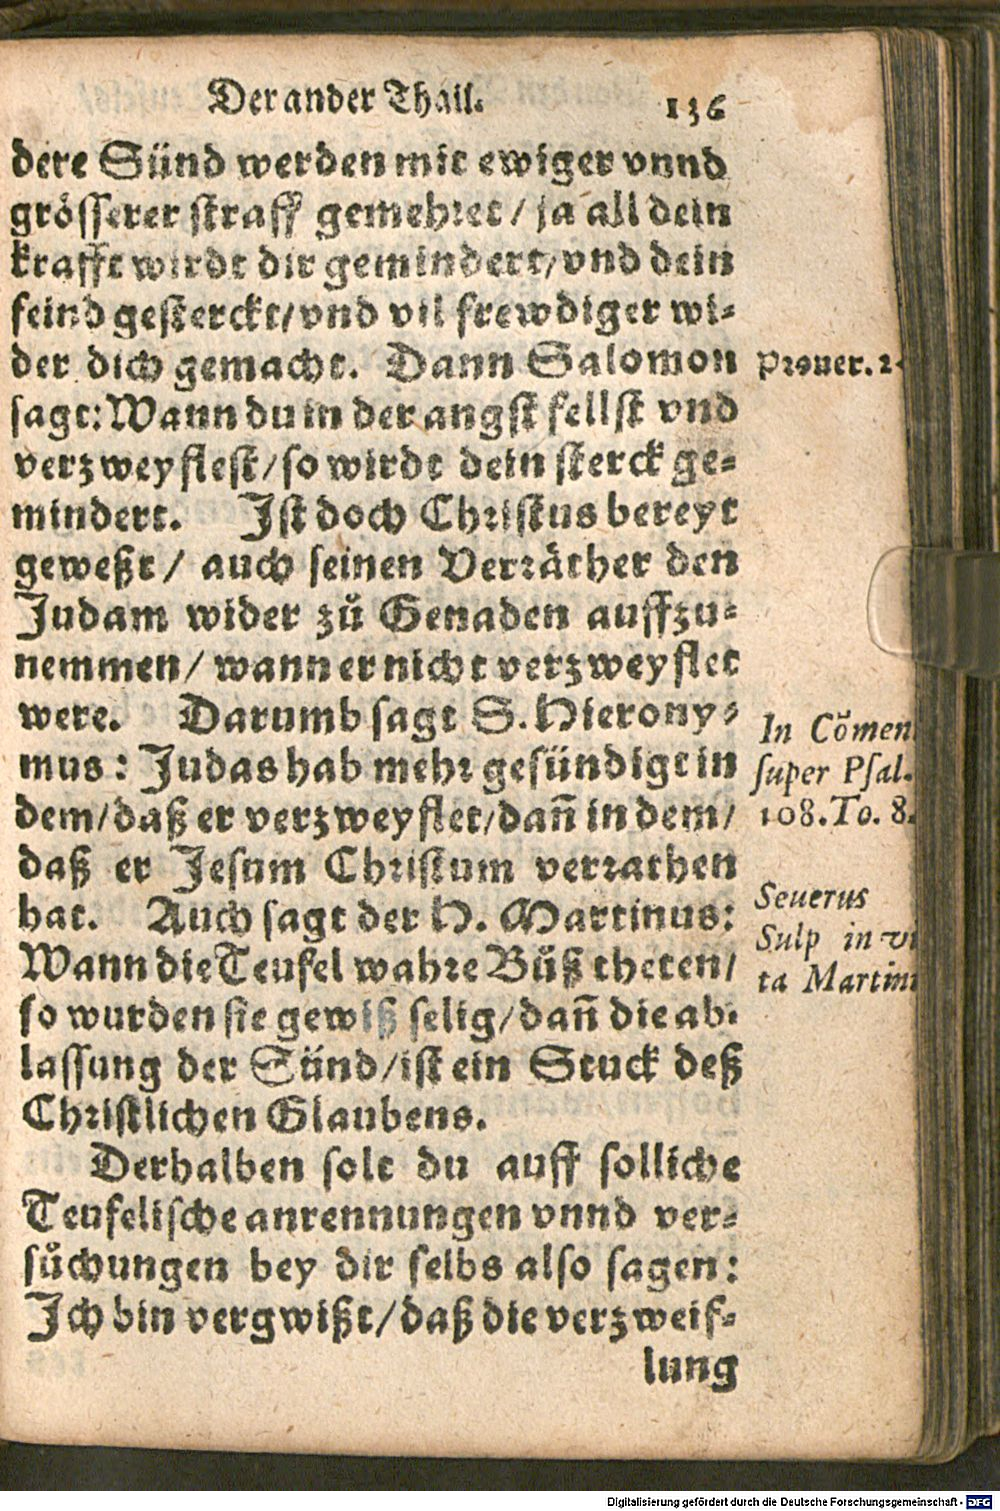 Der ander Thail. 136
dere Sünd werden mit ewiger vnnd
grösserer straff gemehret / ja all dein
krafft wirdt dir gemindert / vnd dein
feind gesterckt / vnd vil frewdiger wi-
der dich gemacht. Dann Salomon
Prouer. 24
sagt: Wann du in der angst fellst vnd
verzweyflest / so wirdt dein sterck ge-
mindert. Ist doch Christus bereyt
geweßt / auch seinen Verräther den
Judam wider zů Genaden auffzu-
nemmen / wann er nicht verzweyflet
were. Darumb sagt S. Hierony-
mus: Judas hab mehr gesündigt in
dem / daß er verzweyflet / dañ in dem /
daß er Jesum Christum verrathen
hat. Auch sagt der H. Martinus:
Wann die Teufel wahre Bůß theten /
so wurden sie gewiß selig / dañ die ab-
lassung der Sünd / ist ein Stuck deß
Christlichen Glaubens.
In Cõmen
super Psal.
108. To. 8.
Seuerus
Sulp in vi
ta Martini
Derhalben solt du auff solliche
Teufelische anrennungen vnnd ver-
sůchungen bey dir selbs also sagen:
Ich bin vergwißt / daß die verzweif-
lung
Digitalisierung gefördert durch die Deutsche Forschungsgemeinschaft - DFG